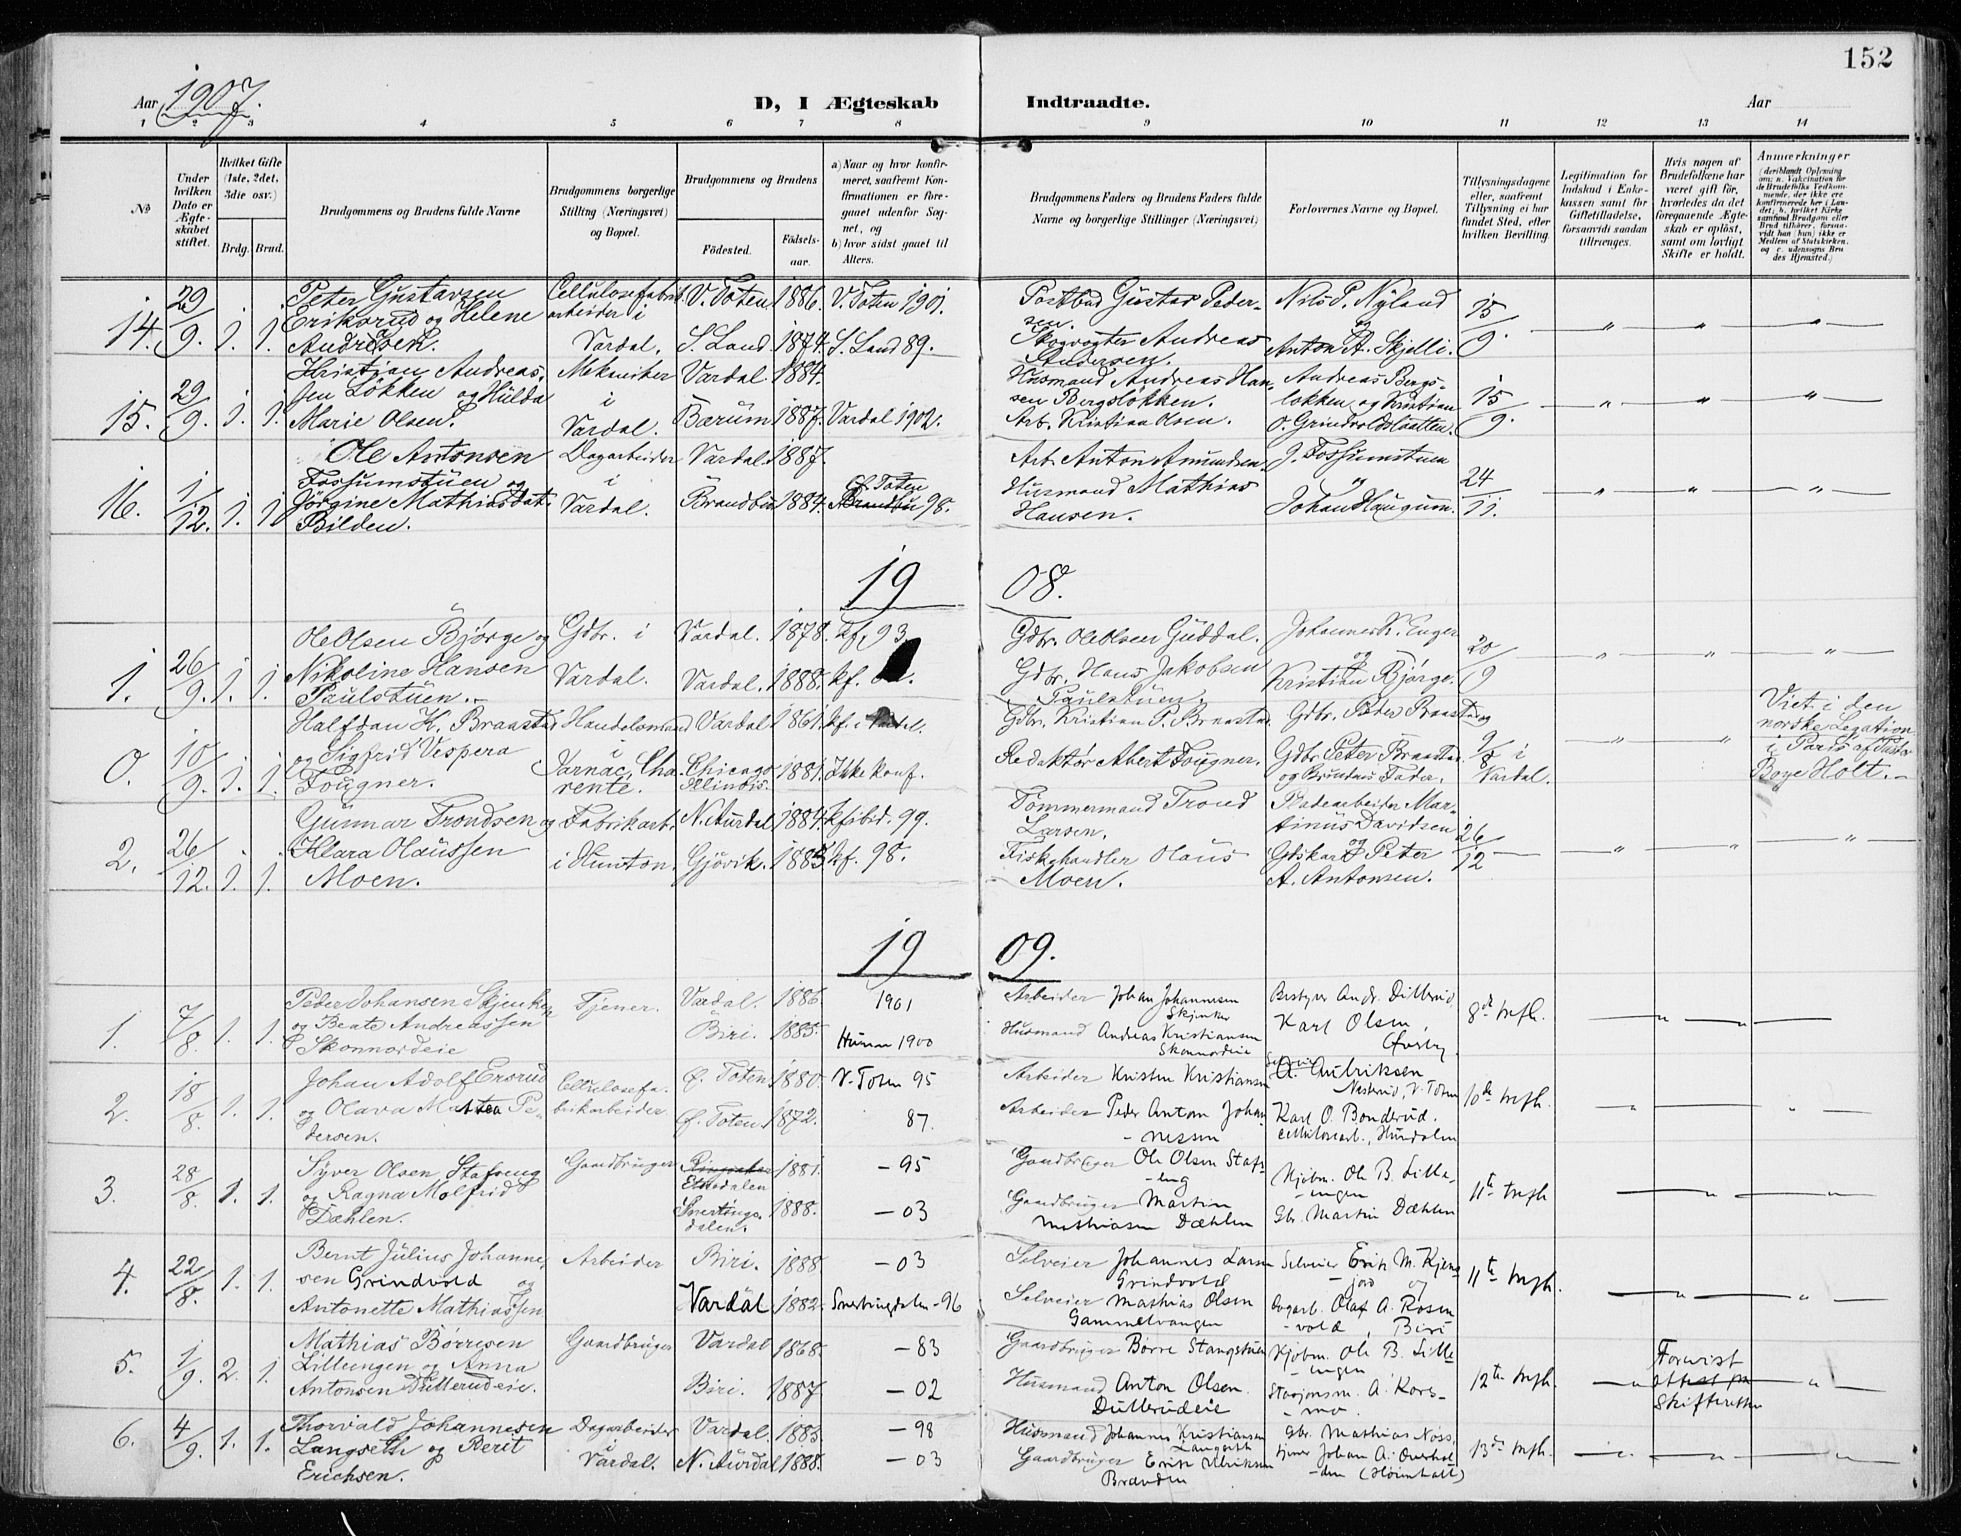 152
Aar 1907. D, I Ægteskab Indtraadte. Aar
1 2 3 4 5 6 7 8 9 10 11 12 13 14
№
Under hvilken Dato er Ægteskabet stiftet.
Hvilket Gifte (1ste, 2det, 3die osv.)
Brdg. Brud.
Brudgommens og Brudens fulde Navne
Brudgommens borgerlige Stilling (Næringsvei) og Bopæl.
Brudgommens og Brudens
Fødested.
Fødselsaar.
a) Naar og hvor konfirmeret, saafremt Konfirmationen er foregaaet udenfor Sognet, og
b) hvor sidst gaaet til Alters.
Brudgommens Faders og Brudens Faders fulde Navne og borgerlige Stillinger (Næringsvei)
Forlovernes Navne og Bopæl.
Tillysningsdagene eller, saafremt Tillysning ei har fundet Sted, efter hvilken Bevilling.
Legitimation for Indskud i Enkekassen samt for Giftetilladelse, forsaavidt saadan tiltrænges.
Hvis nogen af Brudefolkene har været gift før, hvorledes da det foregaaende Ægteskab er opløst, samt om lovligt Skifte er holdt.
Anmerkninger
14. 29/9. 1. 1.
Peter Gustavsen
Eriksrud og Helene
Andresen.
Cellulosefabrikarbeider i
Vardal.
V. Toten 1886. V. Toten 1901.
S. Land. 1874. S. Land 89.
Postbud Gustav Pedersen.
Skogvogter Andreas
Andersen.
Nils P. Nyland
og
Anton A. Skjelli.
15/9. — " — " — " —
15. 29/9. 1. 1.
Kristian Andreassen
Løkken og Hulda
Marie Olsen.
Mekaniker
i
Vardal.
Vardal. 1884.
Bærum 1887. Vardal 1902.
Husmand Andreas Hansen
Bergsløkken.
Arb. Kristian Olsen.
Andreas Bergsløkken
og Kristian
O. Grindvoldslaatten.
15/9. — " — " — " —
16. 1/12. 1. 1.
Ole Antonsen
Fossumstuen og
Jørgine Mathiasdat.
Bilden.
Dagarbeider
i
Vardal.
Vardal. 1887.
Brandbu 1884. Ø. Toten
Brandbu 98.
Arb. Anton Amundsen.
Husmand Mathias
Hansen.
J. Fossumstuen
og
Johan Haugum.
24/11. — " — " — " —
1908.
1. 26/9. 1. 1.
Ole Olsen Bjørge og
Nikoline Hansen
Paulstuen.
Gdbr. i
Vardal.
Vardal. 1878. kf. 93.
Vardal. 1888. kf.
Gdbr. Ole Olsen Guddal.
Gdbr. Hans Jakobsen
Paulstuen.
Johannes K. Enger
og
Kristian Bjørge.
20/9 — " — " — " —
0. 10/9. 1. 1.
Halfdan H. Braastad
og Sigfrid Vespera
Fougner.
Handelsmand
i
Jarnac, Charente.
Vardal 1861. kf. i Vardal.
Chicago
Illinois. 1881. Ikke konf.
Gdbr. Kristian P. Braastad.
Redaktør Albert Fougner.
Gdbr. Peder Braastad og
Gdbr. Peter Braastad
og Brudens Fader.
9/8 i
Vardal.
Viet i den
norske Legation
i Paris af Pastor
Boye Holt.
2. 26/12. 1. 1.
Gunnar Trondsen og
Klara Olaussen
Moen.
Fabrikarb.
i Hunton.
N. Aurdal 1884. kf. ibid. 99.
Gjøvik. 1883 kf. 98.
Tømmermand Trond
Larsen.
Fiskehandler Olaus
Moen.
Martinus Davidsen
og
Gdskar Peter
A. Antonsen.
26/12 — " — " — " —
1909.
1. 7/8. 1. 1.
Peder Johansen Skjenker
og Beate Andreassen
Skonnordeie
Tjener.
Vardal. 1886. 1901
Biri. 1885. 1900
Arbeider Johan Johannesen
Skjenker
Husmand Andreas Kristiansen
Skonnordeie
Bestyrer Andr. Dillerud
Karl Olsen,
8de
2. 18/8. 1. 1.
Johan Adolf Ersrud
og Olava Mathea Pedersen.
Cellulosefabrikarbeider.
Ø. Toten. 1880. V. Toten 95
Ø. Toten. 1872. 87.
Arbeider Kristen Kristiansen
Arbeider Peder Anton Johannessen
V. Toten
Karl O. Bonderud.
Hunndalen
10de
3. 28/8. 1. 1.
Syver Olsen Stafseng
og Ragna Molfrid
Dæhlen.
Gaardbruger
Etnedalen 1881. — 95
Snertingdalen. 1888. — 03
Gaardbruger Ole Olsen Stafseng
Gaardbruger Martin
Mathiasen Dæhlen
Kjøbm. Ole B. Lilleengen
Gbr. Martin Dæhlen
11te
4. 22/8. 1. 1.
Bernt Julius Johannesen
Grindvold og
Antonette Mathiassen
Arbeider
Biri. 1888 — 03
Vardal 1882. Snertingdalen — 96
Selveier Johannes Larsen
Grindvold
Selveier Mathias Olsen
Gammelvangen
Selveier Erik M. Kjensjord
og
Dagarb. Olaf A. Rosenvold, Biri
11te
5. 1/9. 2. 1.
Mathias Børresen
Lilleengen og Anna
Antonsen Dullerudeie.
Gaardbruger
Vardal 1868. — 83
Biri. 1887. — 02
Gaardbruger Børre Stangstuen
Husmand Anton Olsen
Dullerudeie
Kjøbm. Ole B. Lilleengen
Stasjonsm. A. Korsmo.
12te
Forevist
attest fra
Skifteretten
6. 4/9. 1. 1.
Thorvald Johannesen
Langseth og Berit
Erichsen.
Dagarbeider
i
Vardal.
Vardal. 1885. — 98
N. Aurdal 1888. — 03
Husmand Johannes Kristiansen
Langseth
Gaardbruger Erik Ulriksen
Brænden
Gbr. Mathias Næss,
13de